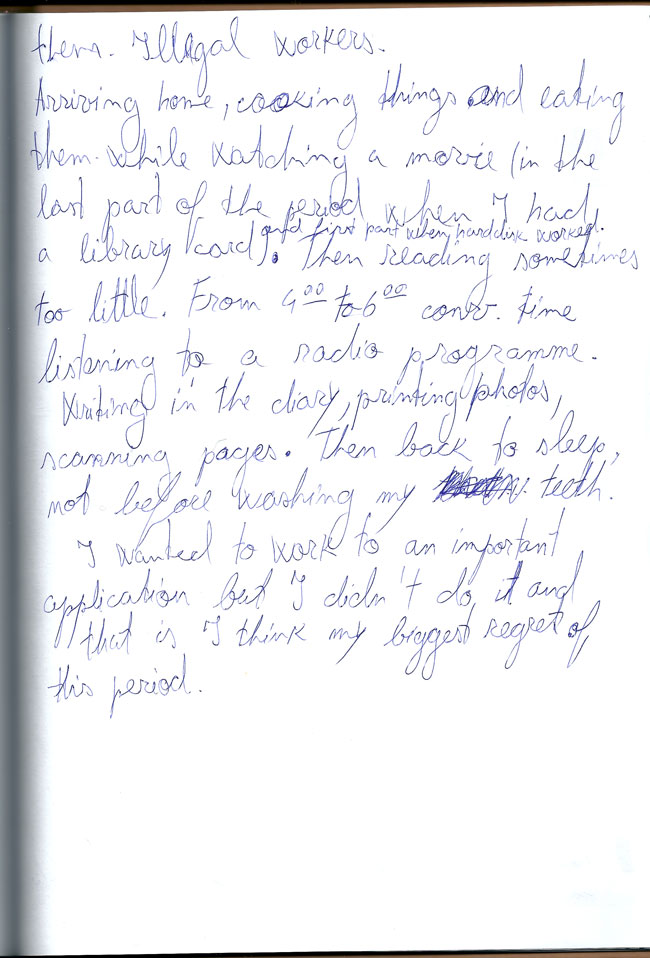 them. Illegal workers.
Arriving home, cooking things and eating
them while watching a movie (in the
last part of the period when I had
and first part when harddisk worked.
a library card). Then reading sometimes
too little. From 4 00 to 6 00 conv. time
listening to a radio programme.
Writing in the diary, printing photos,
scanning pages. Then back to sleep,
not before washing my teeth.
I wanted to work to an important
application but I didn't do it and
that is I think my biggest regret of
this period.